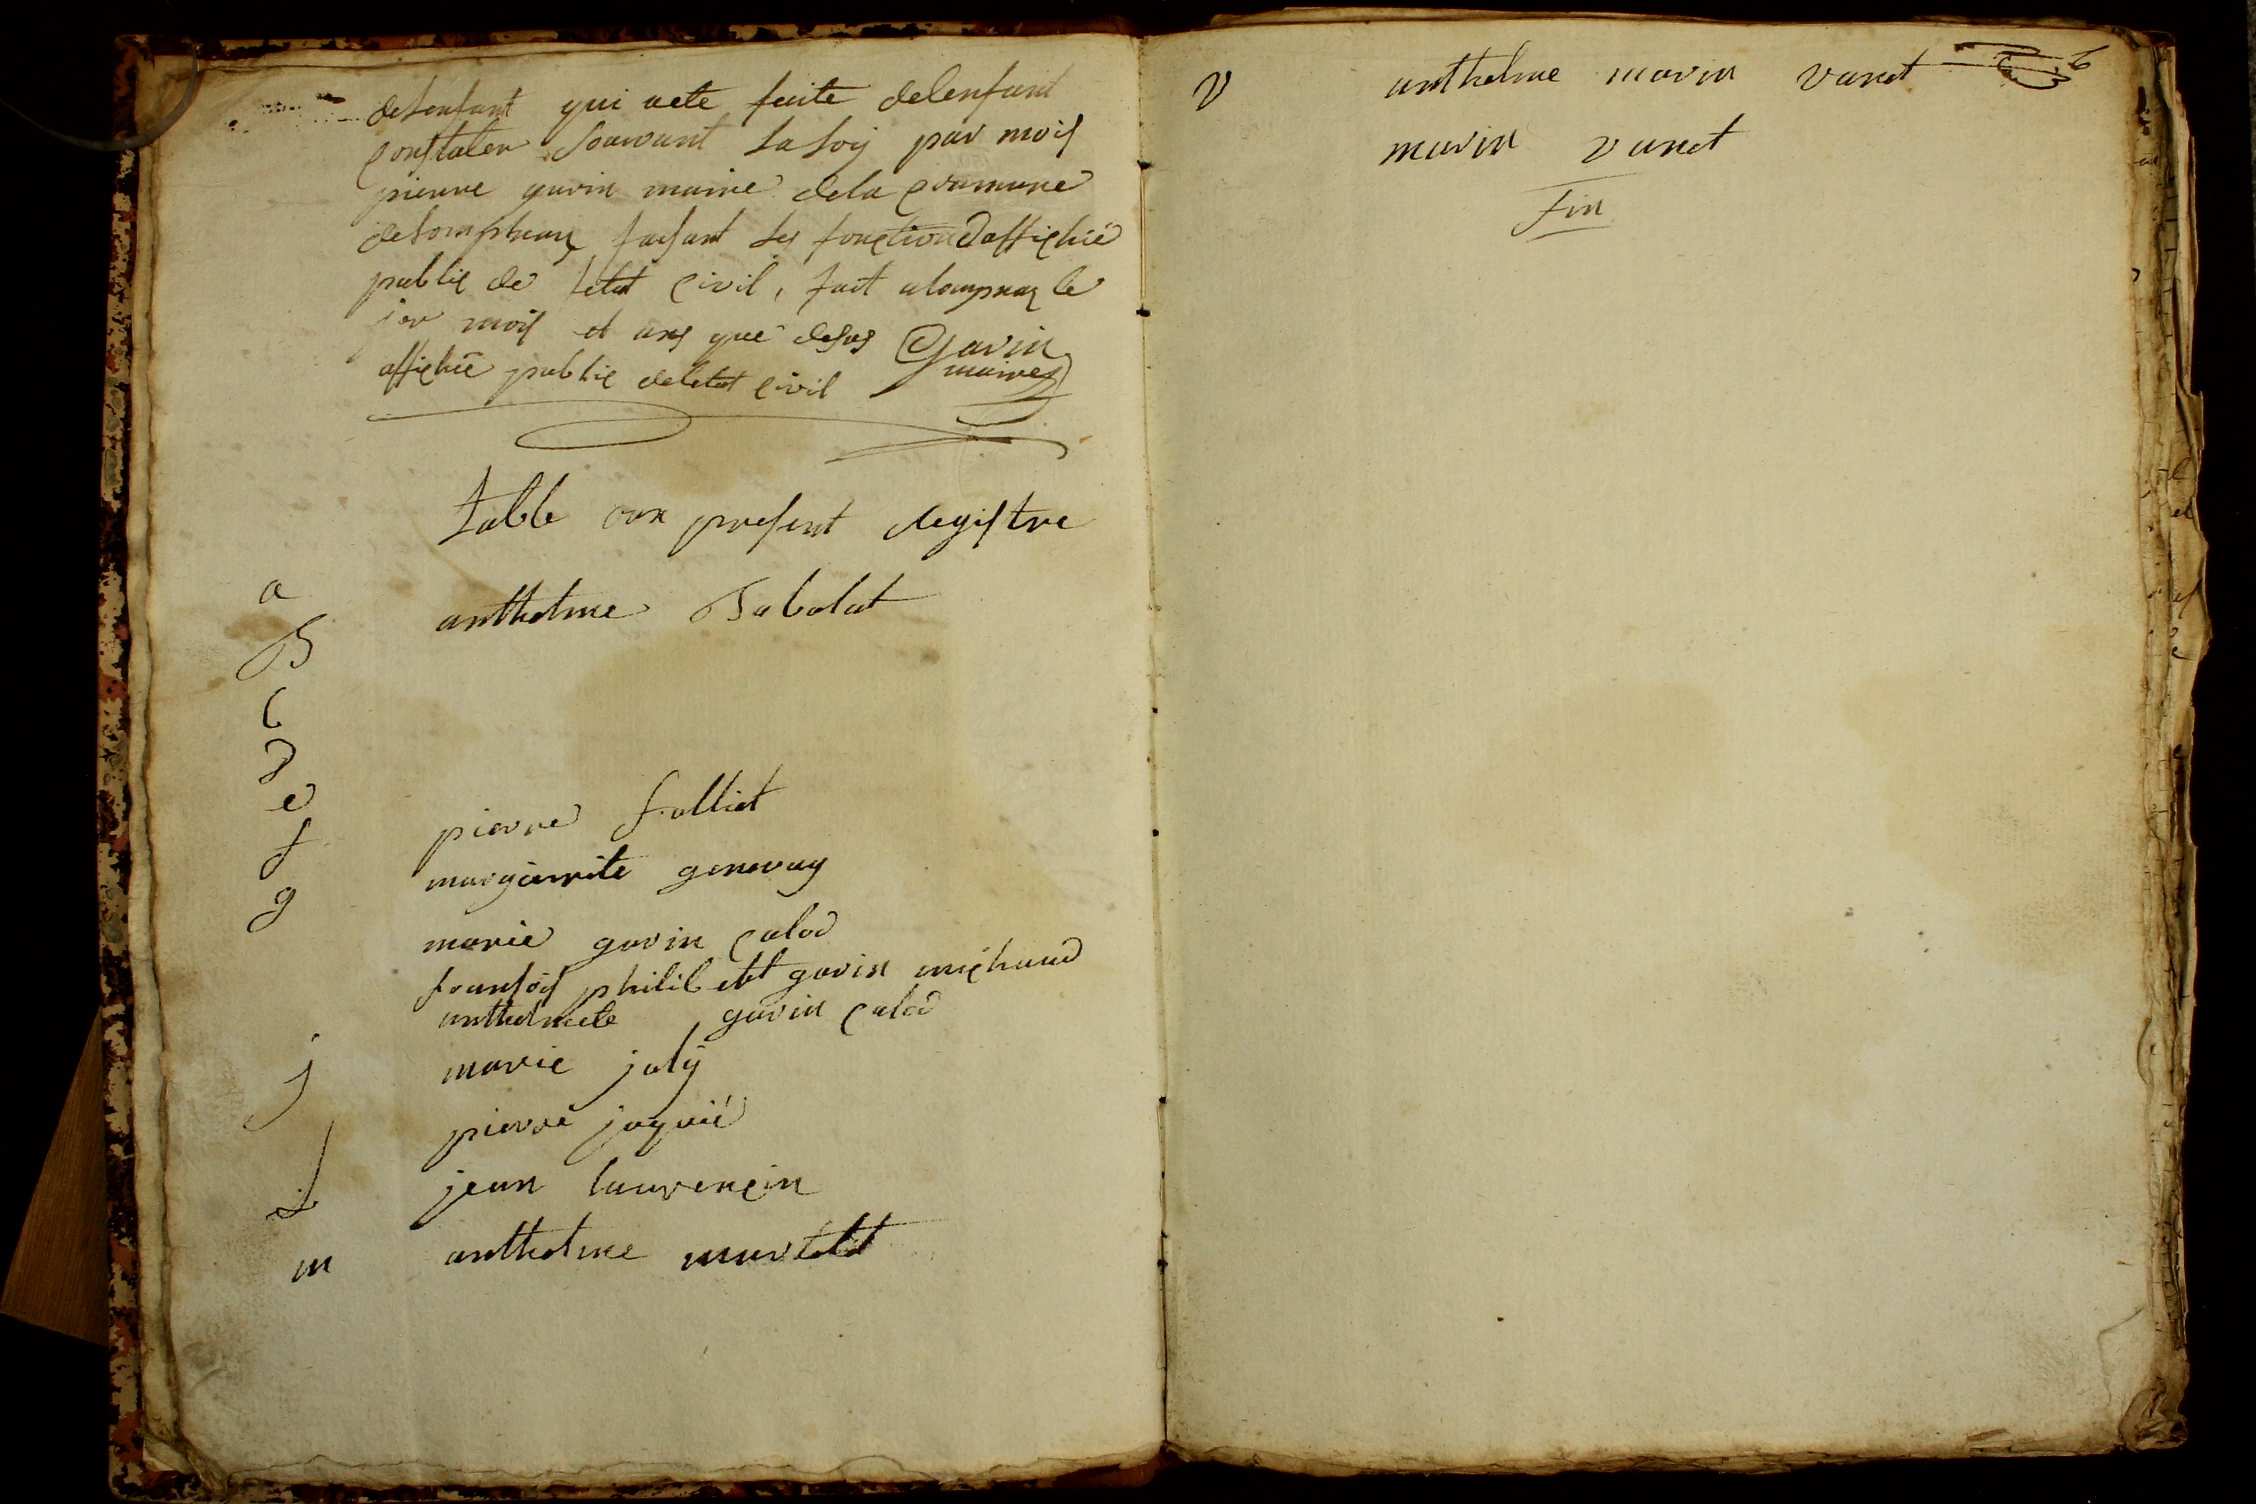 delenfant qui aete faite delenfant
constater Souvant la loy par mois
pierre gavin maire dela commune
delompnaz faisant les fonction daffichié
public de letat civil, fait alompnaz le
jor mois et ans que desus Gavin
maire
affichié public deletat civil
table aux present Registre
a anthelme Babolat
B
C
D
e
f pierre folliet
g margueritte genevay
marie gavin calod
fransois philibert gavin michaud
anthelmete gavin calod
j marie joly
pierre jaquié
L jean laurencin
m anthelme martelet
V anthelme marin vanet 6
marin vanet
fin